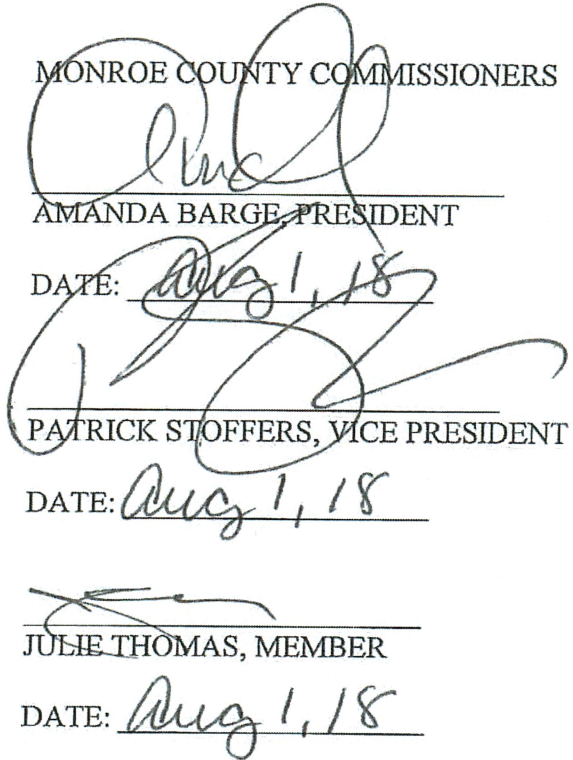 MONROE COUNTY COMMISSIONERS
AMANDA BARGE, PRESIDENT
DATE: Aug 1, 18
PATRICK STOFFERS, VICE PRESIDENT
DATE: Aug 1, 18
JULIE THOMAS, MEMBER
DATE: Aug 1, 18